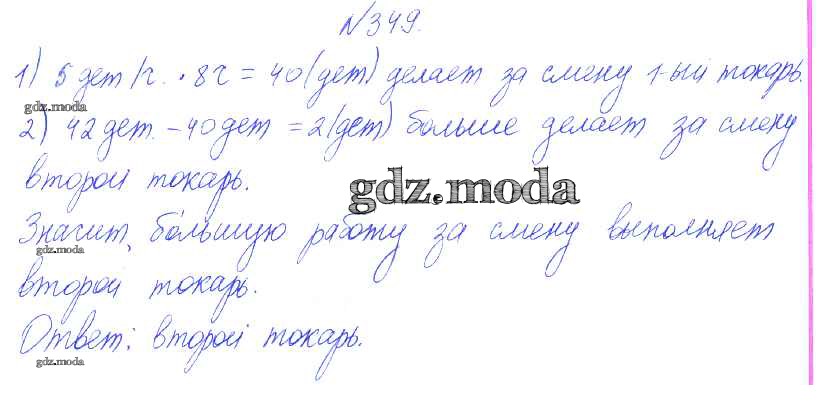 №349.
1) 5 дет/ч. · 8ч = 40 (дет) делает за смену 1-ый токарь.
gdz.moda
2) 42 дет. – 40 дет = 2 (дет) больше делает за смену
второй токарь.
gdz.moda
Значит, бо́льшую работу за смену выполняет
gdz.moda
второй токарь.
Ответ: второй токарь.
gdz.moda